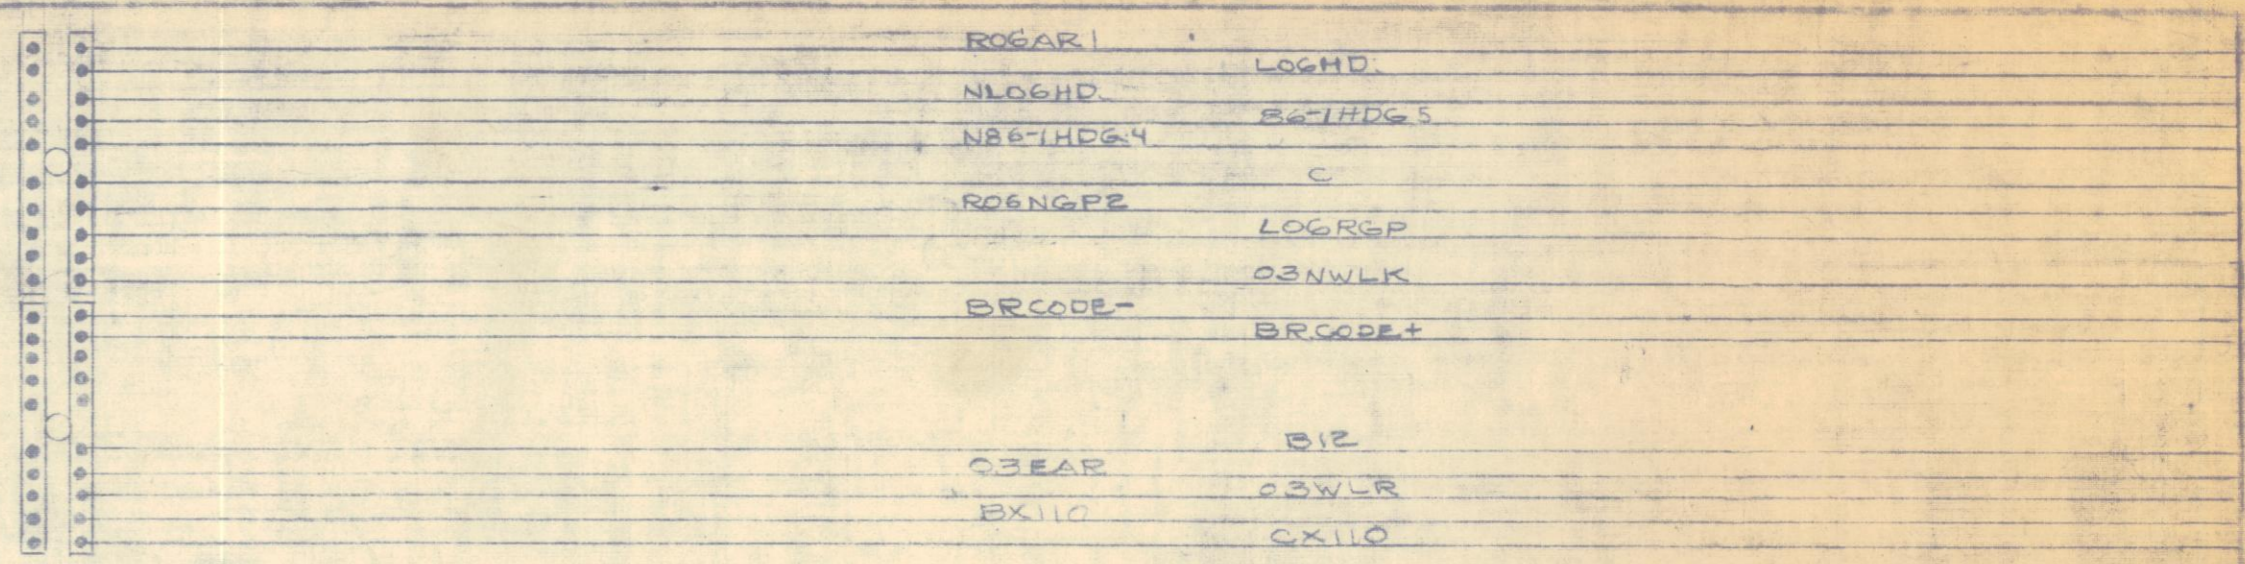 R06AR1
L06HD.
NL06HD.
86-1HDG5
N86-1HDG.4
C
R06NGP2
L06RGP
03NWLK
BRCODE-
BR.CODE+
B12
03EAR
03WLR
BX110
CX110